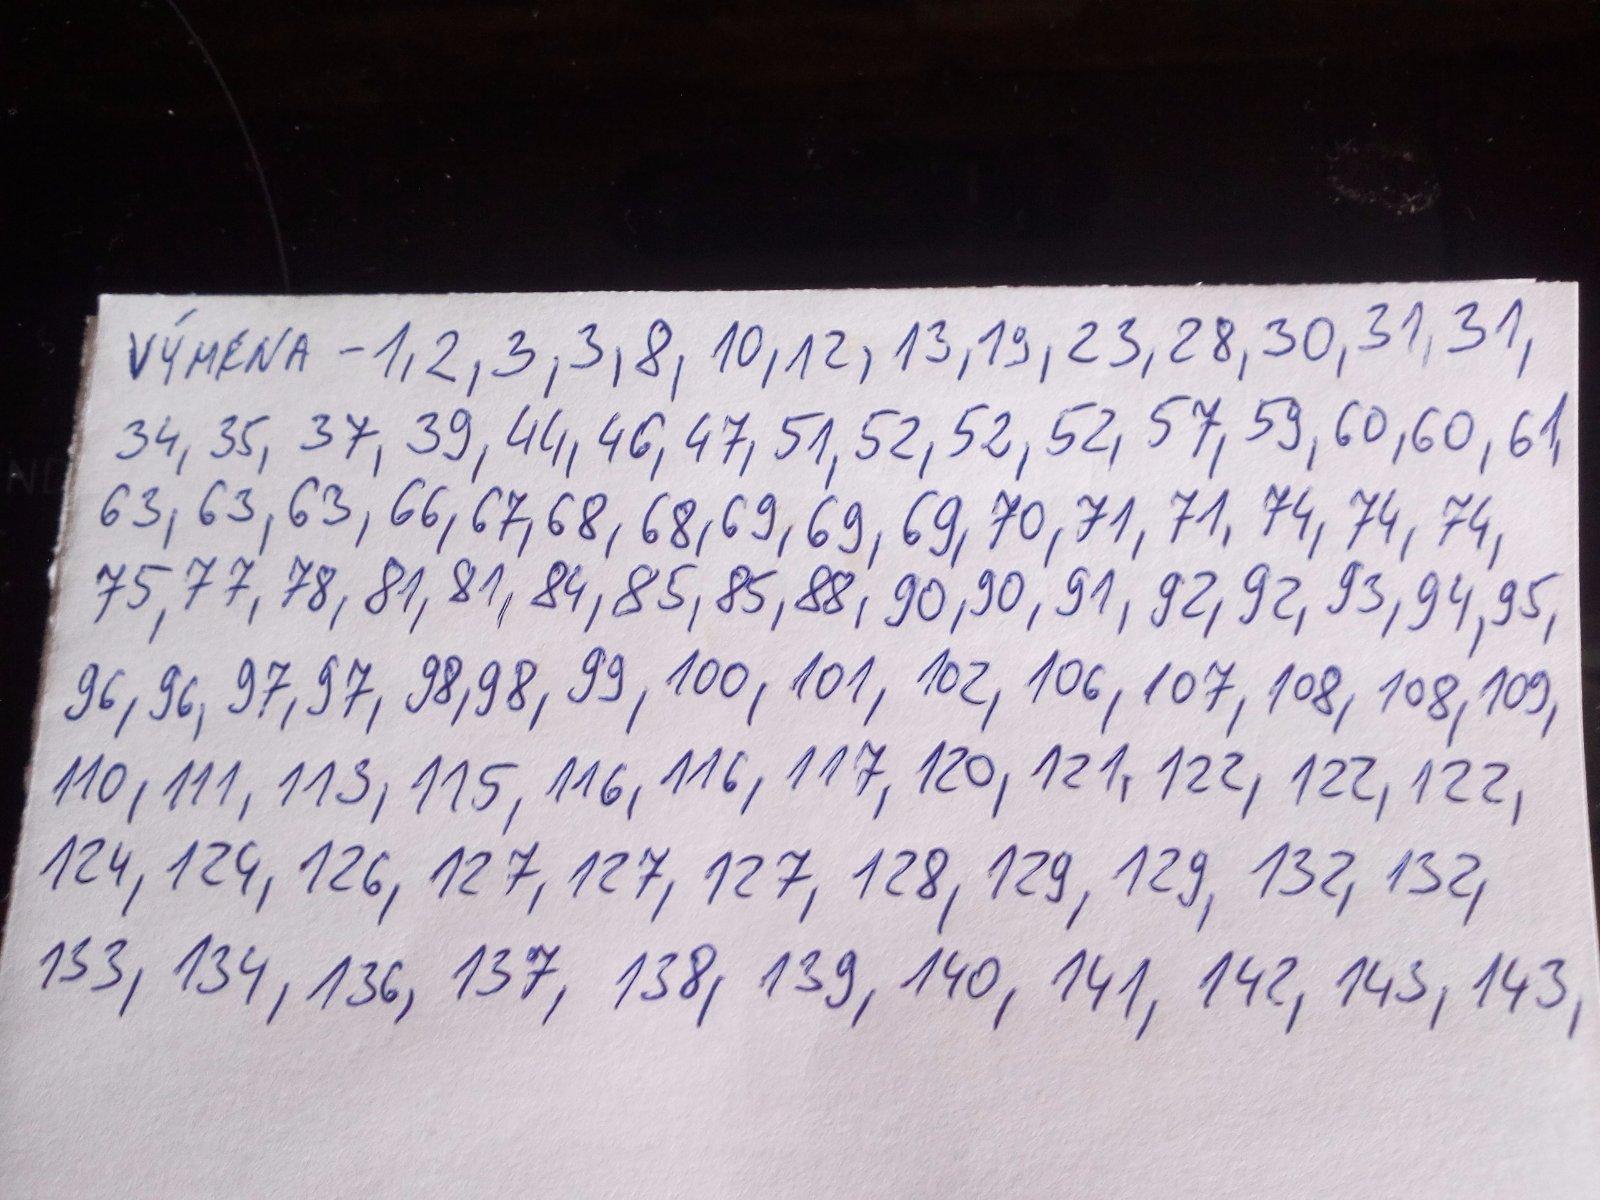 VÝMENA - 1, 2, 3, 3, 8, 10, 12, 13, 19, 23, 28, 30, 31, 31,
34, 35, 37, 39, 44, 46, 47, 51, 52, 52, 52, 57, 59, 60, 60, 61,
63, 63, 63, 66, 67, 68, 68, 69, 69, 69, 70, 71, 71, 74, 74, 74,
75, 77, 78, 81, 81, 84, 85, 85, 88, 90, 90, 91, 92, 92, 93, 94, 95,
96, 96, 97, 97, 98, 98, 99, 100, 101, 102, 106, 107, 108, 108, 109,
110, 111, 113, 115, 116, 116, 117, 120, 121, 122, 122, 122,
124, 124, 126, 127, 127, 127, 128, 129, 129, 132, 132,
133, 134, 136, 137, 138, 139, 140, 141, 142, 143, 143,